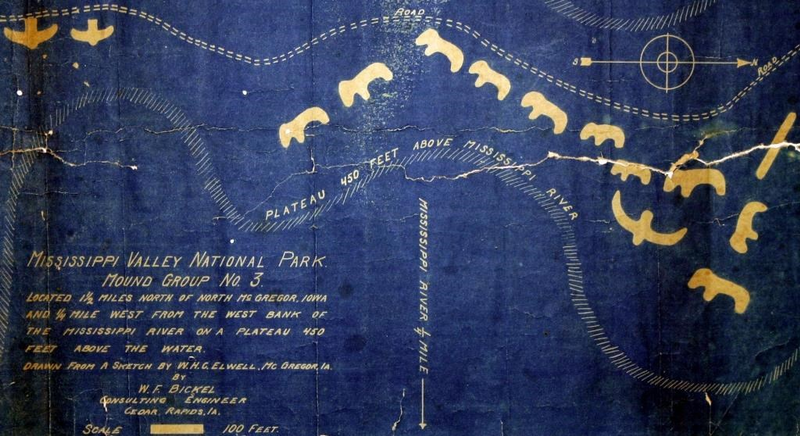 ROAD
S
N
ROAD
PLATEAU 450 FEET ABOVE MISSISSIPPI RIVER
MISSISSIPPI RIVER ¼ MILE
MISSISSIPPI VALLEY NATIONAL PARK.
MOUND GROUP NO. 3.
LOCATED 1½ MILES NORTH OF NORTH MC GREGOR, IOWA
AND ¼ MILE WEST FROM THE WEST BANK OF
THE MISSISSIPPI RIVER ON A PLATEAU 450
FEET ABOVE THE WATER.
DRAWN FROM A SKETCH BY W.H.C. ELWELL, MC GREGOR, IA.
BY
W. F. BICKEL
CONSULTING ENGINEER
CEDAR, RAPIDS, IA.
SCALE 100 FEET.